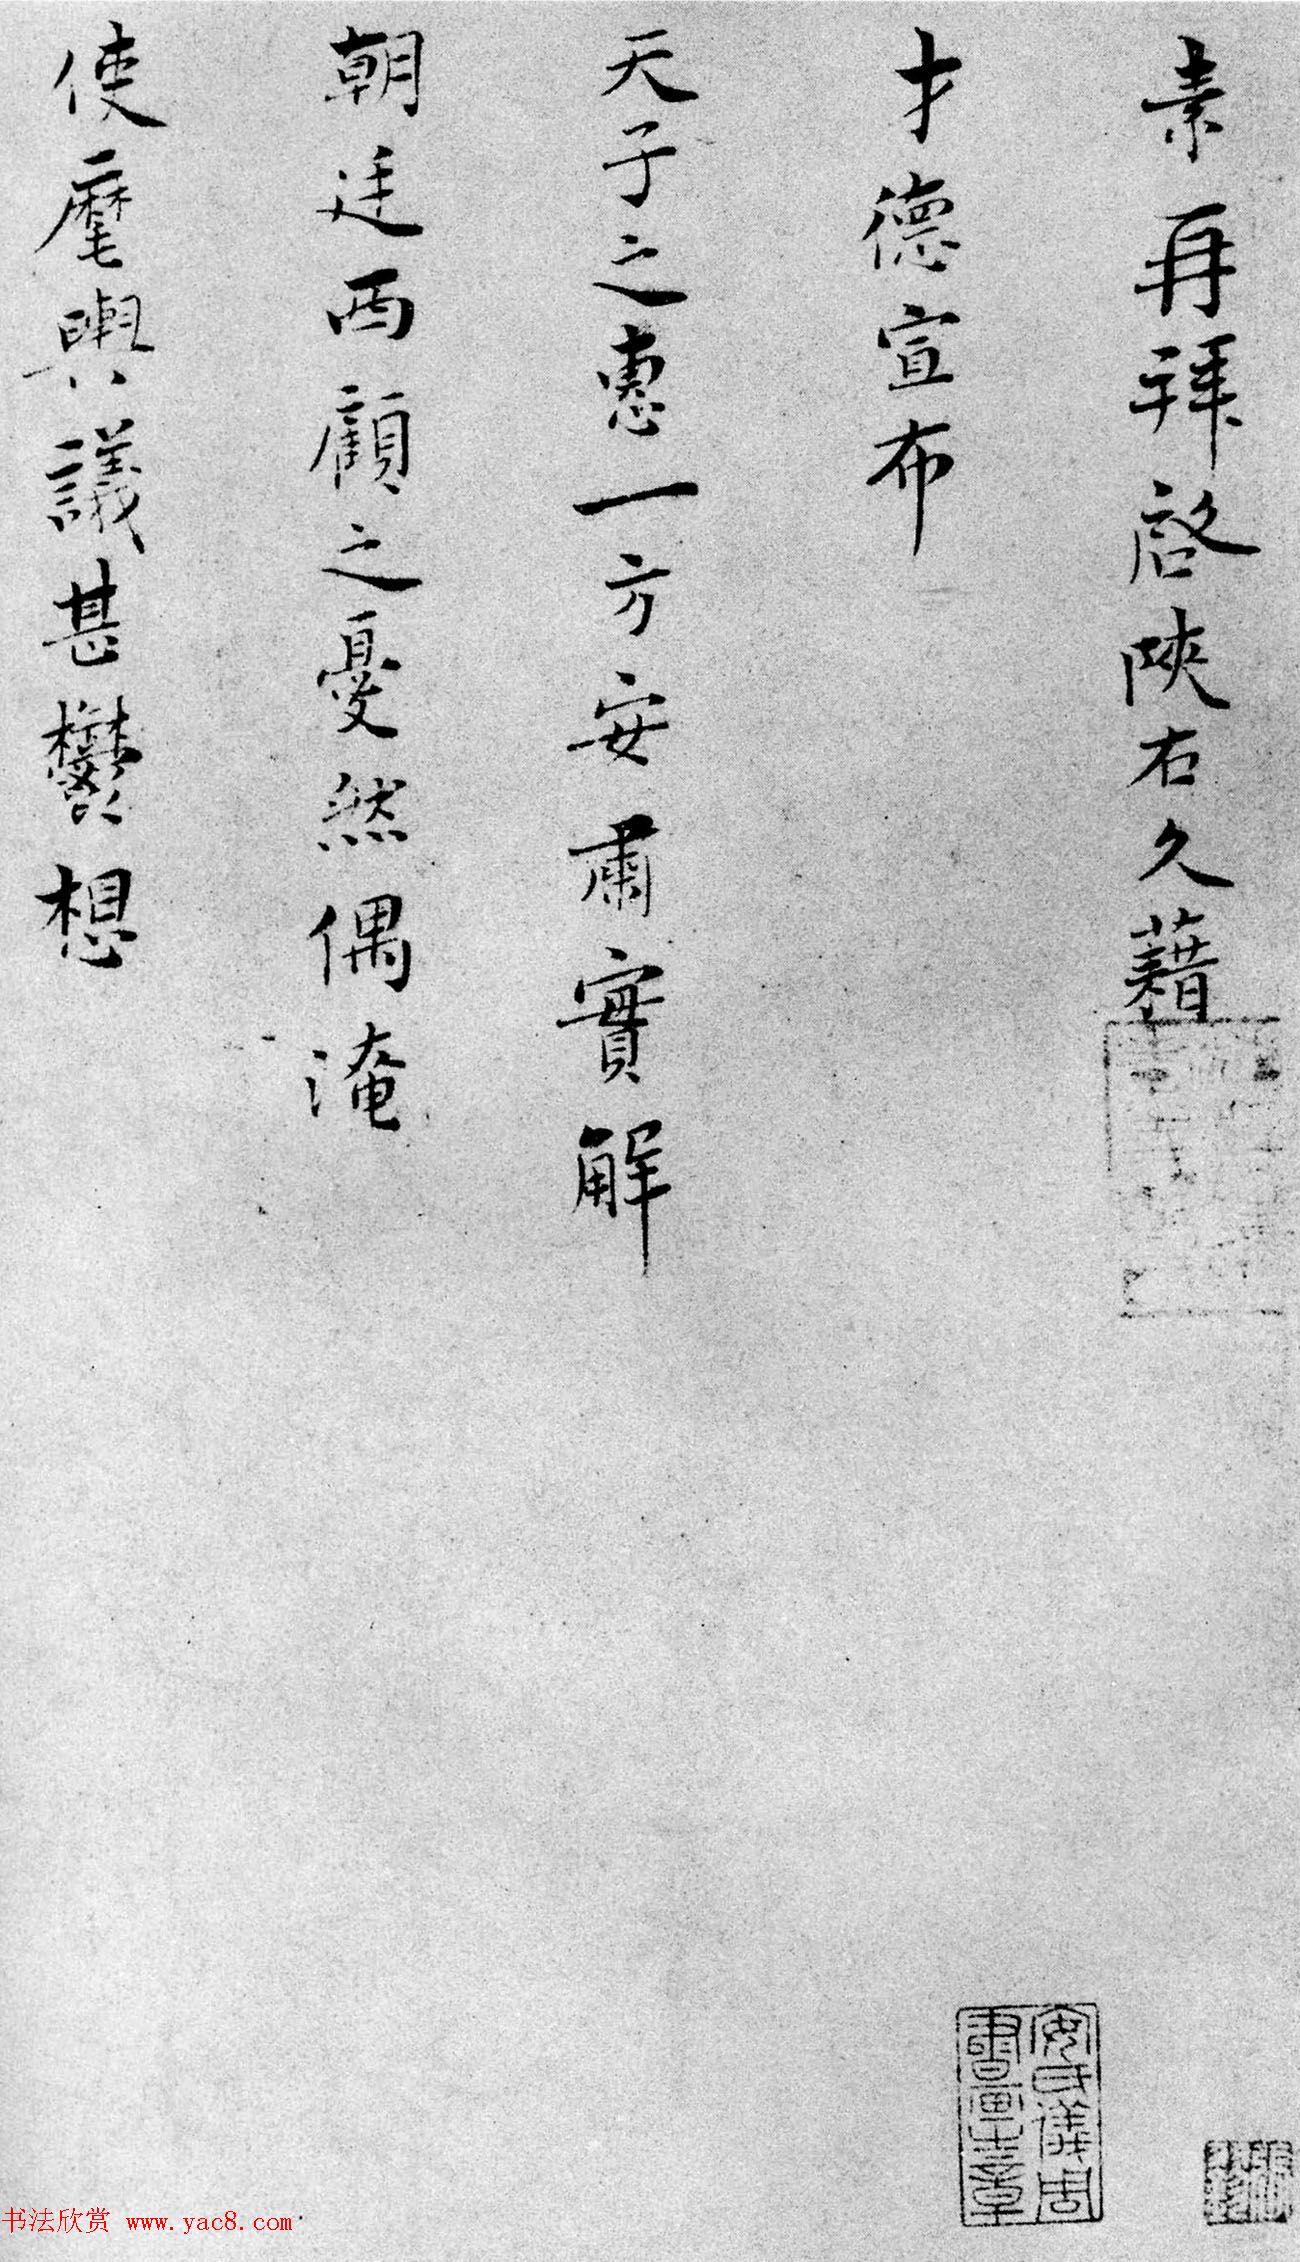 素再拜啓陝右久藉
才德宣布
天子之惠一方安肅實解
朝廷西顧之憂然偶淹
使麾輿議甚鬱想
安氏儀周
書畫之章
书法欣赏 www.yac8.com